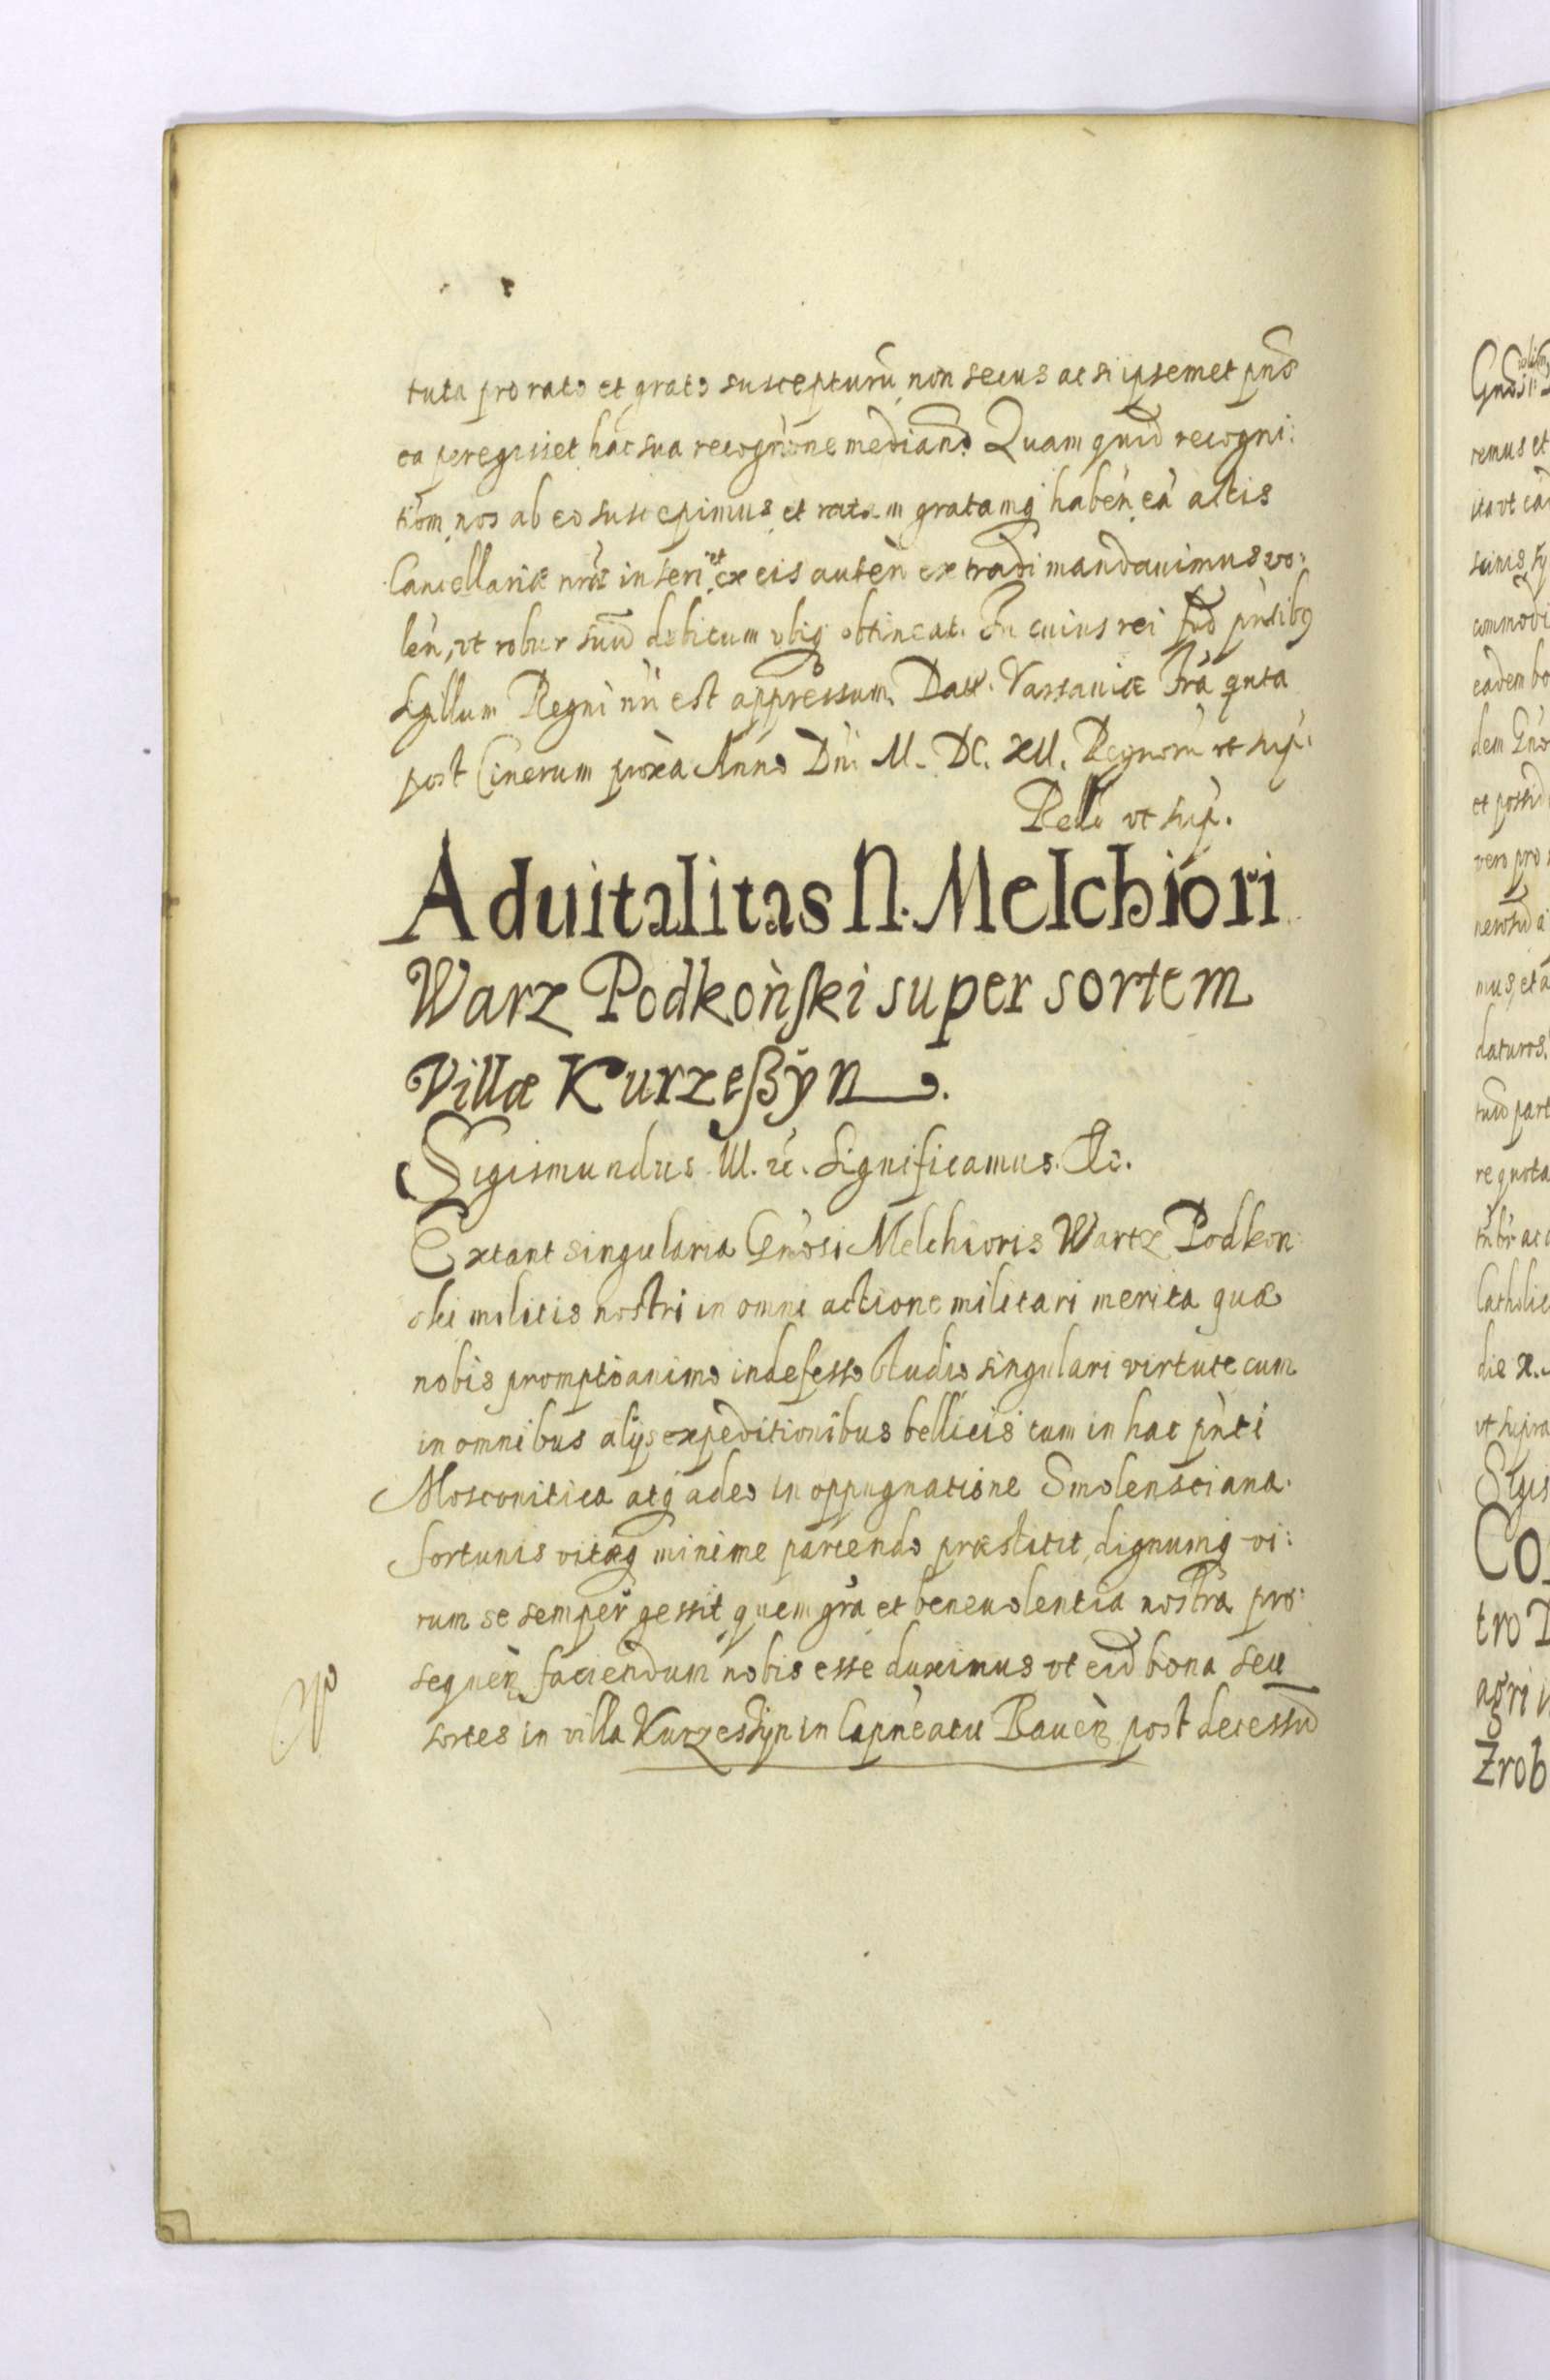 tuta pro rato et grato suscepturũ, non secus ac si ipsemet pñs
ea peregisset, hac sua recogñione mediañ. Quam quid recogni:
tiom, nos ab eo suscepimus, et ratam gratamq habeñ, eã actis
Cancellariæ nr̃æ inseri et ex eis auteñ extradi mandauimus vo:
leñ, vt robur suũ debitum vbiq obtineat. In cuius rei fid pñsibq
sigillum Regni nri est appressum. Datt. Varsauiæ fr̃a qnta
post Cinerum proxã Anno Dñi M. DC. XII. Regnorũ vt sup.
Relt vt sup.
Aduitalitas N. Melchiori
Warz Podkoński super sortem
Villæ Kurzeßÿn.
Sigismundus III. etc. Significamus. Etc.
Extant singularia Gñosi Melchioris Wartz Podkon
ski militis nostri in omni actione militari merita quæ
nobis prompto animo indefesso studio singulari virtute cum
in omnibus alijs expeditionibus bellicis tum in hac pñti
Moscouitica atq adeo in oppugnatione Smolensciana
fortunis vitæq minime parcendo præstitit, dignumq vi:
rum se semper gessit, quem gr̃a et beneuolentia nostra pro:
sequeñ faciendum nobis esse duximus vt eid bona seu
sortes in villa Kurzessÿn in Capñeatu Raueñ post decessũ
Gnosi
remus et
ita vt eã
commodi
eadem bo
dem Gño
et possid
vero pro
mus, et a
daturos.
part
re quota
Catholic
die X.
vt supra
Sigis
Co
tro D
agri
Zrob